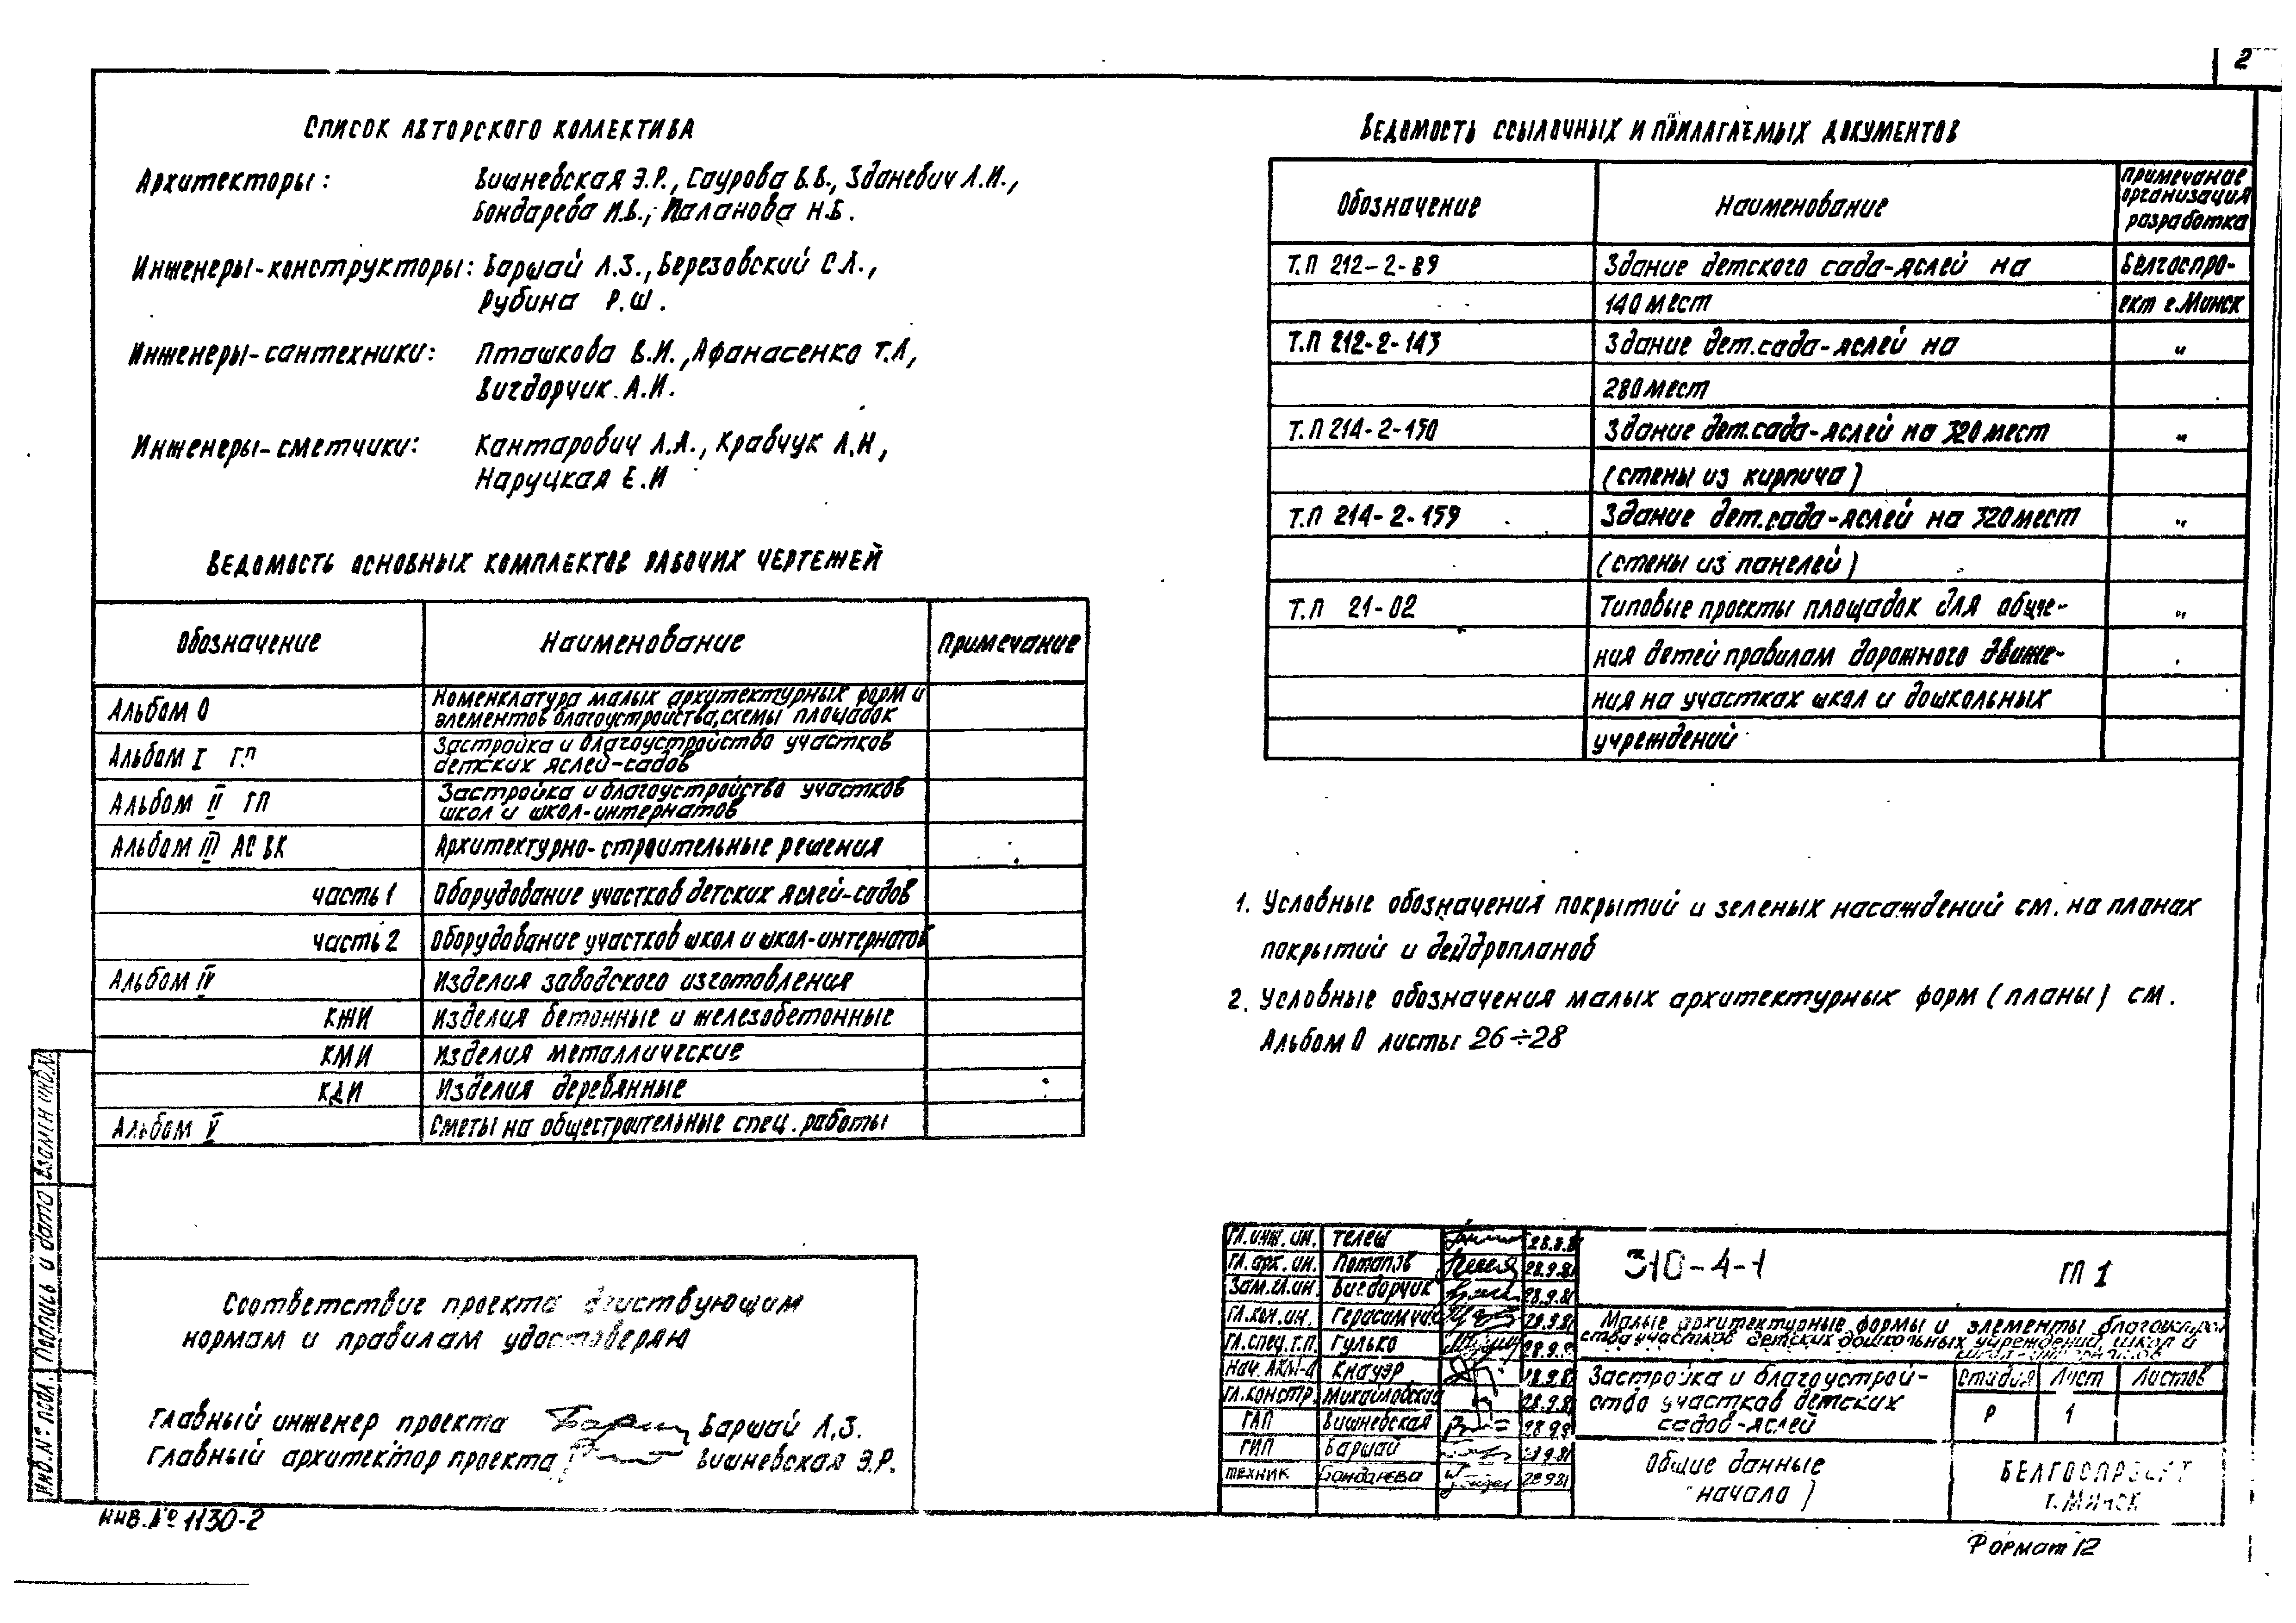 2
Список авторского коллектива
Архитекторы: Вишневская Э.Р., Саурова В.В., Зданевич Л.И.,
Бондарева И.В., Паланова Н.Б.
Инженеры-конструкторы: Баршай Л.З., Березовский С.Л.,
Рубина Р.Ш.
Инженеры-сантехники: Пташкова В.И., Афанасенко Т.Л,
Вигдорчик А.И.
Инженеры-сметчики: Кантарович Л.А., Кравчук Л.Н,
Наруцкая Е.И
Ведомость основных комплектов рабочих чертежей
Обозначение Наименование Примечание
Альбом 0 Номенклатура малых архитектурных форм и
элементов благоустройства, схемы площадок
Альбом I ГП Застройка и благоустройство участков
детских яслей-садов
Альбом II ГП Застройка и благоустройство участков
школ и школ-интернатов
Альбом III АС ВК Архитектурно-строительные решения
часть 1 Оборудование участков детских яслей-садов
часть 2 Оборудование участков школ и школ-интернатов
Альбом IV Изделия заводского изготовления
КЖИ Изделия бетонные и железобетонные
КМИ Изделия металлические
КДИ Изделия деревянные
Альбом V Сметы на общестроительные спец. работы
Соответствие проекта действующим
нормам и правилам удостоверяю
Главный инженер проекта Баршай Л.З.
Главный архитектор проекта Вишневская Э.Р.
Инв. № подл. Подпись и дата Взамен инв. №
Инв. № 1130-2
Ведомость ссылочных и прилагаемых документов
Обозначение Наименование Примечание
организация
разработка
Т.П 212-2-89 Здание детского сада-яслей на Белгоспро-
140 мест ект г. Минск
Т.П 212-2-143 Здание дет. сада-яслей на "
280 мест
Т.П 214-2-150 Здание дет. сада-яслей на 320 мест "
(стены из кирпича)
Т.П 214-2-159 Здание дет. сада-яслей на 320 мест "
(стены из панелей)
Т.П 21-02 Типовые проекты площадок для обуче- "
ния детей правилам дорожного движе-
ния на участках школ и дошкольных
учреждений
1. Условные обозначения покрытий и зеленых насаждений см. на планах
покрытий и дендропланов
2. Условные обозначения малых архитектурных форм (планы) см.
Альбом 0 листы 26÷28
Гл. инж. ин. Телеш 28.9.81
Гл. арх. ин. Потапов 28.9.81
Зам. гл. ин. Вигдорчик 28.9.81
Гл. кон. ин. 28.9.81
Гл. спец. т.п. Гулько 28.9.8
Нач. АКМ-4 Кнауэр 28.9.81
Гл. констр. Михайловская 28.9.81
ГАП Вишневская 28.9.81
ГИП Баршай 28.9.81
Техник Бондарева 28.9.81
310-4-1 ГП 1
Малые архитектурные формы и элементы благоустрой
ства участков детских дошкольных учреждений, школ и
школ-интернатов
Застройка и благоустрой-
ство участков детских
садов-яслей
Стадия Лист Листов
Р 1
Общие данные
начало)
БЕЛГОСПРОЕКТ
г. Минск
Формат 12